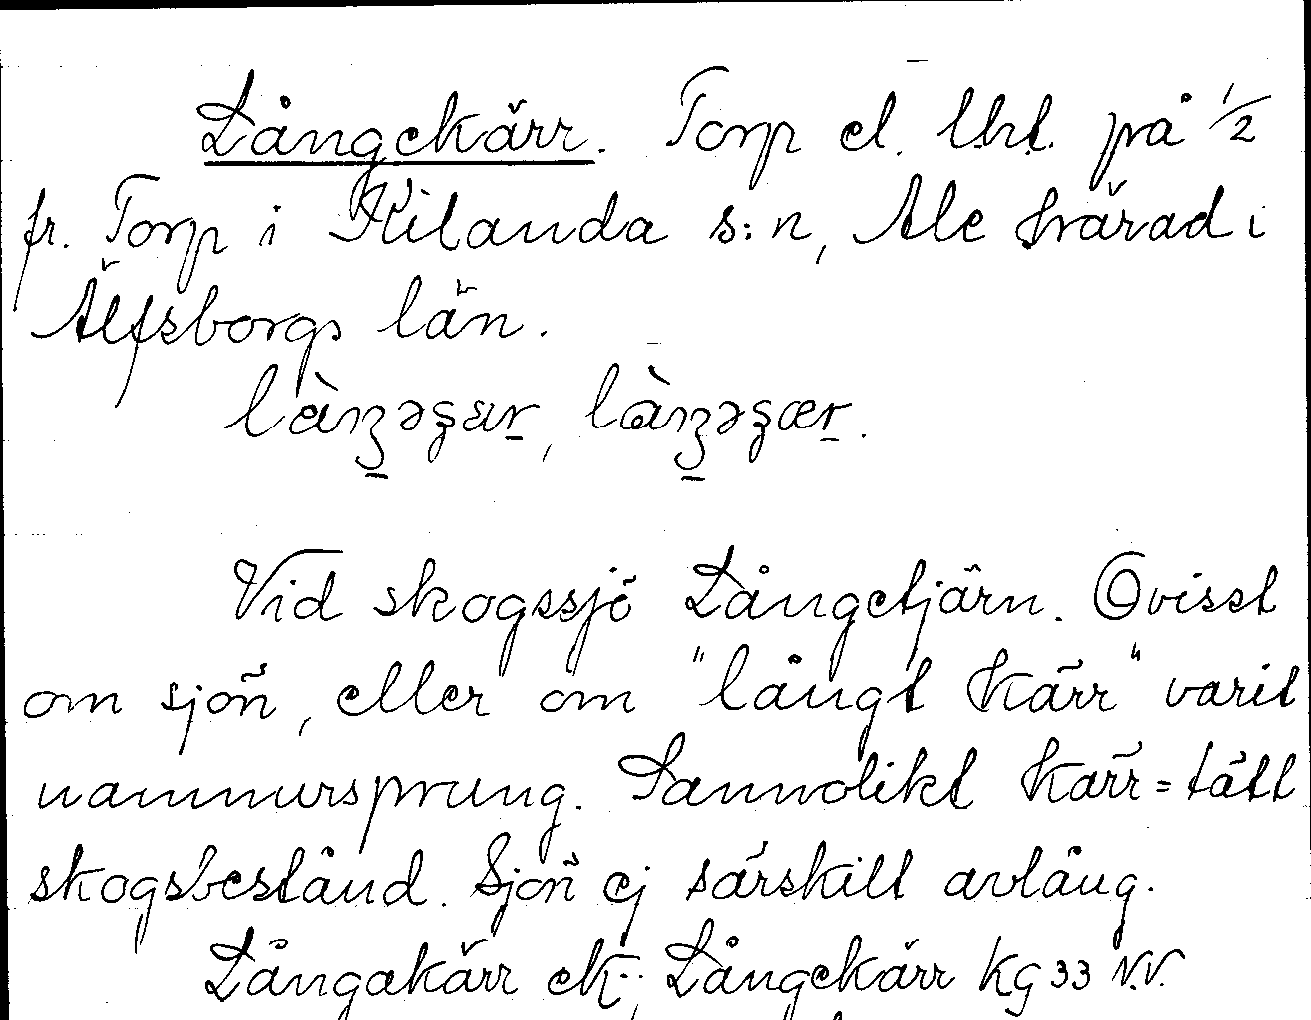 Långekärr. Torp el. lht. på 1/2
fr. Torp i Kilanda s:n, Ale härad i
Älfsborgs län.
Vid skogssjö Långetjärn. Ovisst
om sjön, eller om "långt kärr" varit
namnursprung. Sannolikt kärr = tätt
skogsbestånd. Sjön ej särskilt avlång.
Långakärr ek.; Långekärr Kg 33 N.V.